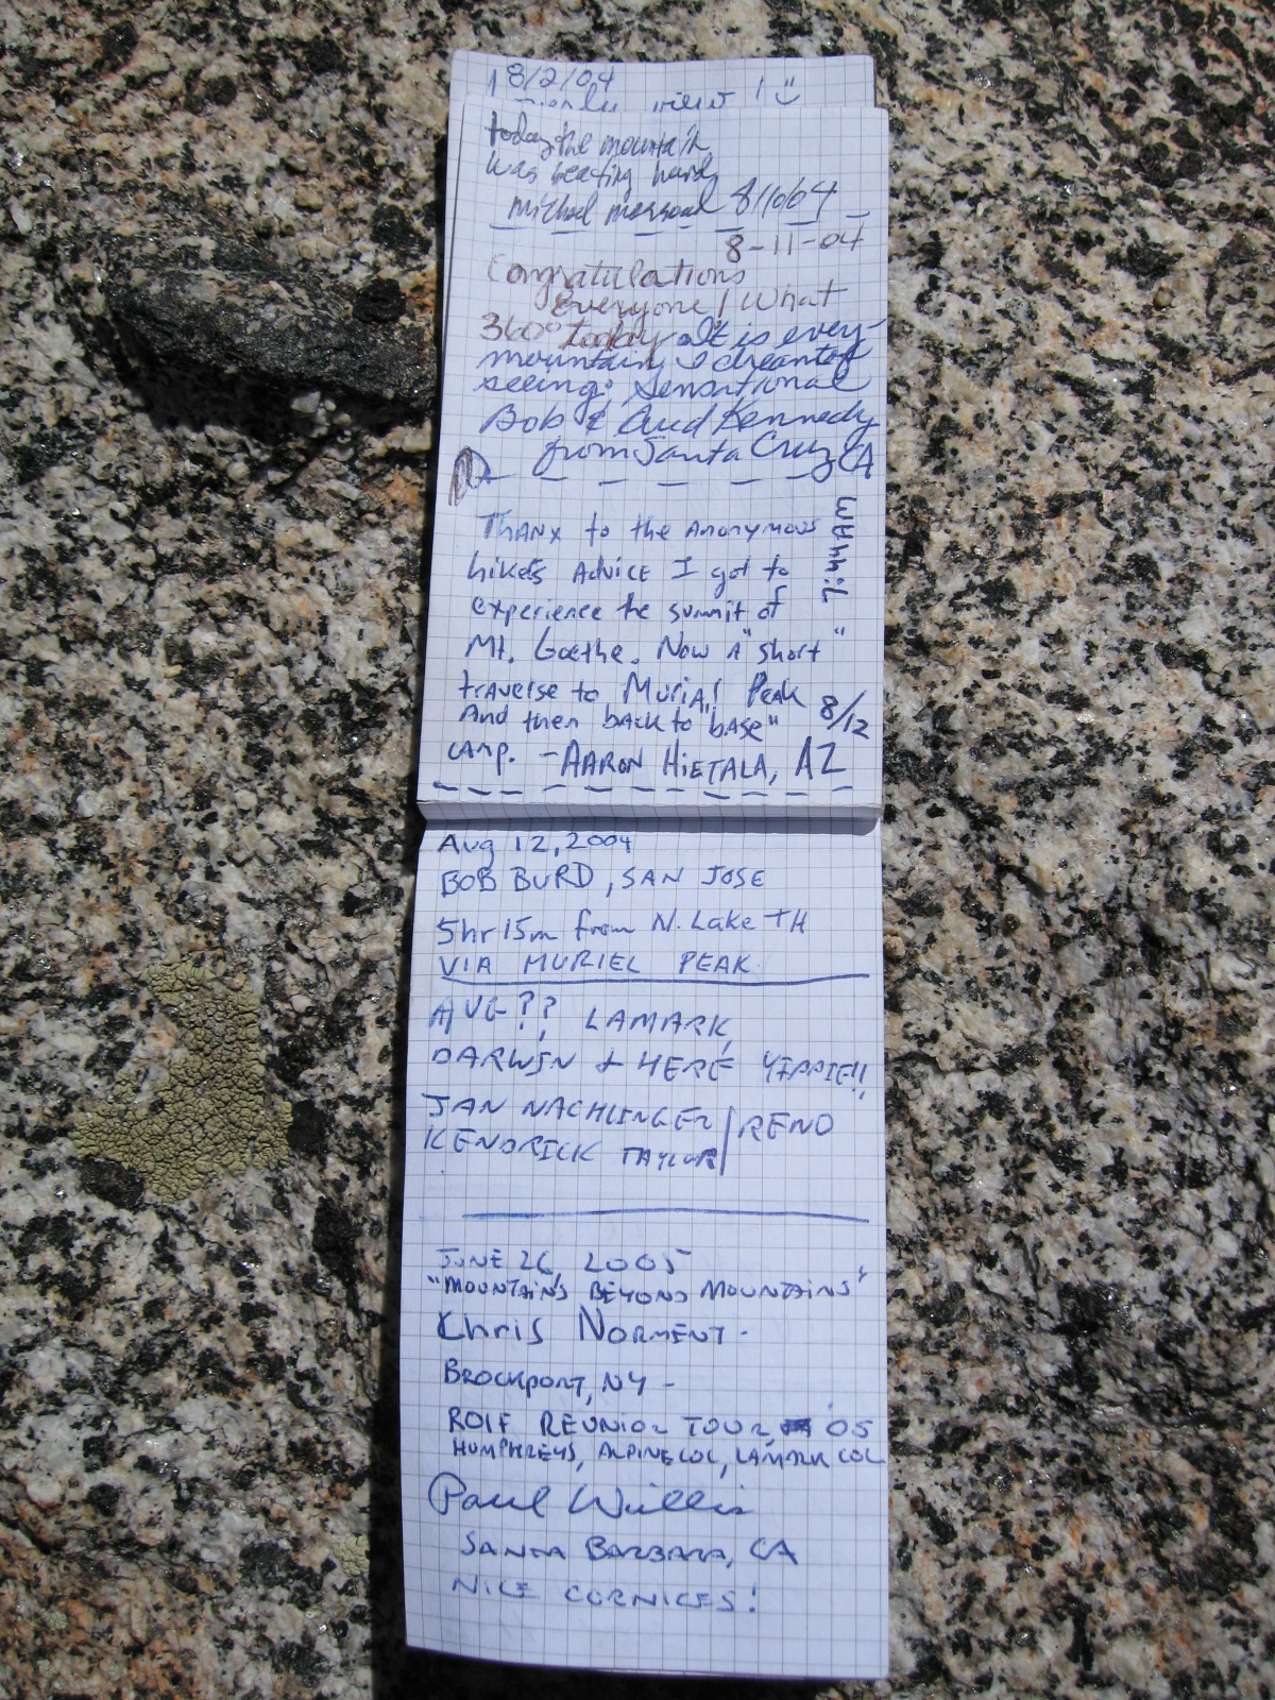 8/2/04
view !
today the mountain
was beating hard
michael 8/10/04
8-11-04
Congratulations
everyone! What
360° today. It is every
mountain I dreamt of
seeing; Sensational
Bob & Aud Kennedy
from Santa Cruz CA
Thanx to the Anonymous
hikers Advice I got to
experience the summit of
Mt. Goethe. Now A "short"
traverse to Murial Peak
And then back to "base"
camp. - AARON HIETALA, AZ
8/12
Aug 12, 2004
BOB BURD, SAN JOSE
5hr 15m from N. Lake TH
VIA MURIEL PEAK
AUG ??, LAMARK,
DARWIN & HERE YIPPIE!!
JAN NACHLINGER / RENO
KENDRICK TAYLOR
JUNE 26, 2005
"MOUNTAINS BEYOND MOUNTAINS"
Chris NORMENT -
BROCKPORT, NY -
ROIF REUNION TOUR '05
HUMPHREYS, ALPINE COL, LAMARK COL
Paul Willis
SANTA BARBARA, CA
NICE CORNICES!